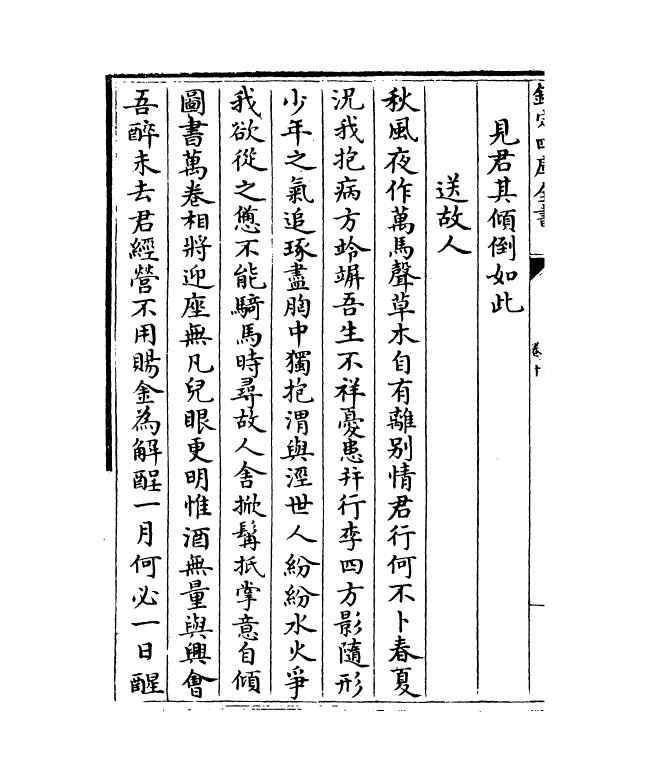 欽定四庫全書
卷十
見君其傾倒如此
送故人
秋風夜作萬馬聲草木自有離别情君行何不卜春夏
況我抱病方竛竮吾生不祥憂患并行李四方影隨形
少年之氣追琢盡胸中獨抱渭與涇世人紛紛水火爭
我欲從之憊不能騎馬時尋故人舍掀髯抵掌意自傾
圖書萬卷相將迎座無凡兒眼更明惟酒無量與興會
吾醉未去君經營不用賜金為解酲一月何必一日醒